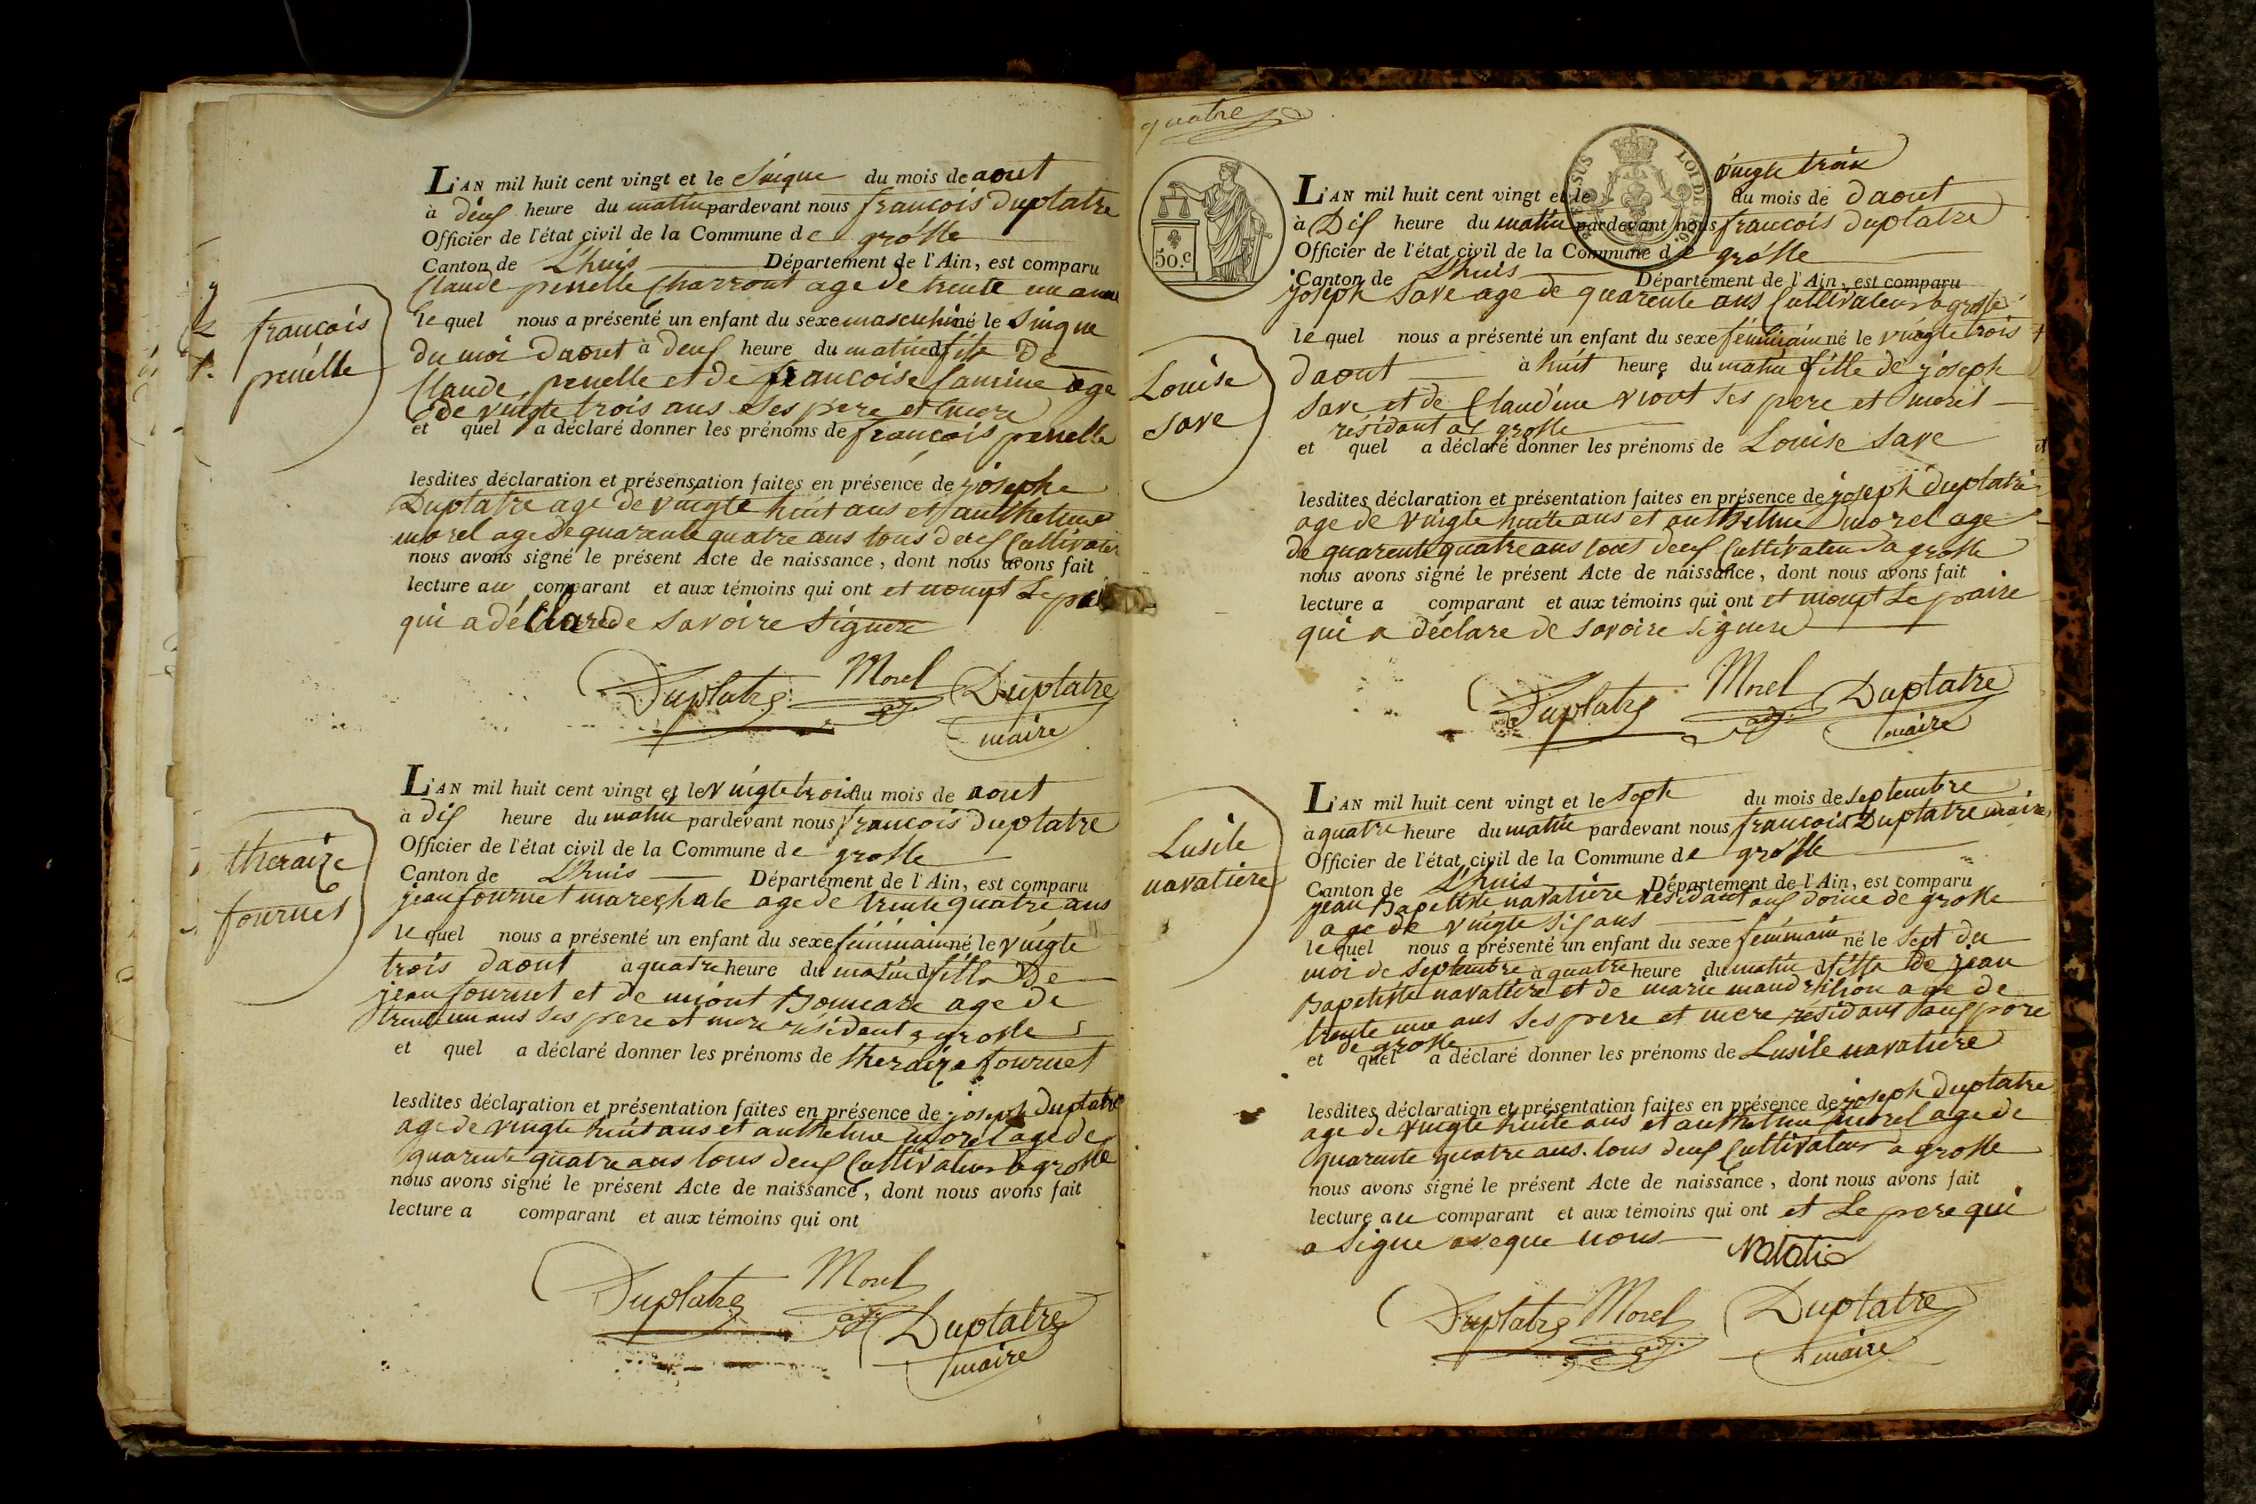 L'AN mil huit cent vingt et le sinque du mois de aout
à deus heure du matin pardevant nous francois Duplatre
Officier de l'état civil de la Commune de grosle
Canton de L'huis Département de l'Ain, est comparu
Claude penelle Charront age de trente un ans
francois
penelle
le quel nous a présenté un enfant du sexe masculin né le sinque
du moi daout à deus heure du matin fils De
Claude penelle et de francoise age
de vingte trois ans ses pere et mere
et quel a déclaré donner les prénoms de françois penelle
lesdites déclaration et présensation faites en présence de josephe
Duplatre age de vingte huit ans et anthelme
morel age de quarente quatre ans tous deus Cultivateur
nous avons signé le présent Acte de naissance, dont nous avons fait
lecture au comparant et aux témoins qui ont et nompt Le
qui a déClare de savoire signere
Duplatre Morel Duplatre
adj. maire
L'AN mil huit cent vingt et le vingte trois du mois de aout
à dis heure du matin pardevant nous francois duplatre
Officier de l'état civil de la Commune de grosle
Canton de L'huis Département de l'Ain, est comparu
jean fournet marechale age de trente quatre ans
theraize
fournet
le quel nous a présenté un enfant du sexe féminain né le vingte
trois daout à quatre heure du matin d fille De
jean fournet et de miont age de
trente un ans ses pere et mere résidant a grosle
et quel a déclaré donner les prénoms de theraize fournet
lesdites déclaration et présentation faites en présence de joseph duplatre
age de vingte huit ans et anthelme morel age de
quarente quatre ans tous deus Cultivateur a grosle
nous avons signé le présent Acte de naissance, dont nous avons fait
lecture a comparant et aux témoins qui ont
Duplatre Morel
adj. Duplatre
maire
quatre
50.c
SUS LOI DE
vingte trois
L'AN mil huit cent vingt et le du mois de daout
à Dis heure du matin pardevant nous francois duplatre
Officier de l'état civil de la Commune de grosle
Canton de L'huis Département de l'Ain, est comparu
joseph save age de quarente ans Cultivateur a grosle
Louise
save
le quel nous a présenté un enfant du sexe féminain né le vingte trois
daout à huit heure du matin d fille de joseph
save et de Claudine viout ses pere et mere
résidant a grosle
et quel a déclaré donner les prénoms de Louise save
lesdites déclaration et présentation faites en présence de joseph duplatre
age de vingte huite ans et anthelme morel age
de quarente quatre ans tous deus Cultivateur a grosle
nous avons signé le présent Acte de naissance, dont nous avons fait
lecture a comparant et aux témoins qui ont et nompt Le paire
qui a déclare de savoire signere
Duplatre Morel Duplatre
adj. maire
L'AN mil huit cent vingt et le sept du mois de septembre
à quatre heure du matin pardevant nous francois Duplatre maire
Officier de l'état civil de la Commune de grosle
Canton de L'huis Département de l'Ain, est comparu
jean Bapetiste navatiere résidant de grosle
age de vingte sis ans
Lusile
navatiere
le quel nous a présenté un enfant du sexe feminain né le sept du
moi de septembre à quatre heure du matin d fille De jean
Bapetiste navatiere et de marie age de
trente une ans ses pere et mere residant
de grosle
et quel a déclaré donner les prénoms de Lusile navatiere
lesdites déclaration et présentation faites en présence de joseph duplatre
age de vingte huite ans et anthelme morel age de
quarente quatre ans tous deus Cultivateur a grosle
nous avons signé le présent Acte de naissance, dont nous avons fait
lecture au comparant et aux témoins qui ont et Le pere qui
a signe aveque nous
Duplatre Morel Duplatre
adj. maire